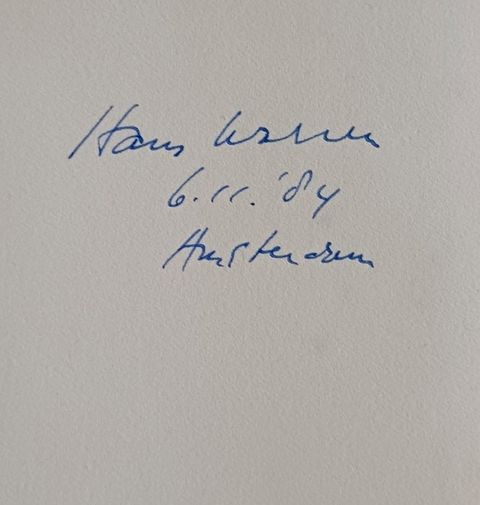 Hans Warren
6.11.'84
Amsterdam